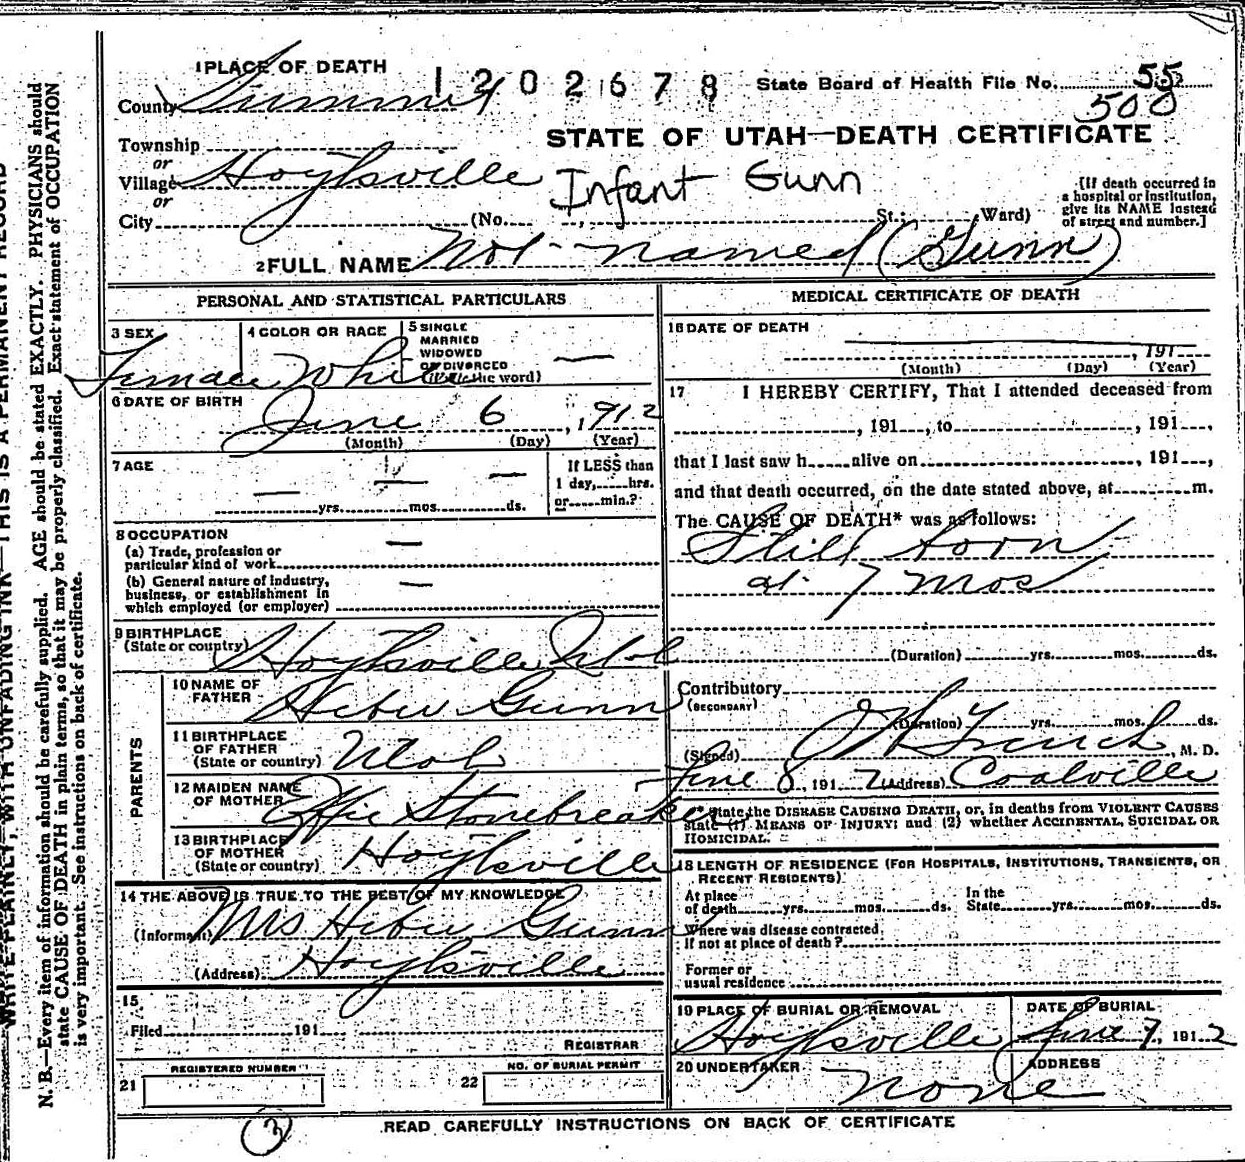 1 PLACE OF DEATH
1202678
State Board of Health File No. 55
500
County Summit
STATE OF UTAH—DEATH CERTIFICATE
Township
or
Village Hoytsville
Infant Gunn
or
City (No. , St.; Ward)
[If death occurred in a hospital or institution, give its NAME instead of street and number.]
2 FULL NAME Not named (Gunn)
PERSONAL AND STATISTICAL PARTICULARS
3 SEX
4 COLOR OR RACE
5 SINGLE
MARRIED
WIDOWED
OR DIVORCED
(Write the word)
Female White —
6 DATE OF BIRTH
June 6, 1912
(Month) (Day) (Year)
7 AGE
If LESS than
1 day, hrs.
or min.?
— — —
yrs. mos. ds.
8 OCCUPATION
(a) Trade, profession or
particular kind of work —
(b) General nature of industry,
business, or establishment in
which employed (or employer) —
9 BIRTHPLACE
(State or country) Hoytsville Utah
PARENTS
10 NAME OF
FATHER Heber Gunn
11 BIRTHPLACE
OF FATHER
(State or country) Utah
12 MAIDEN NAME
OF MOTHER Effie Stonebreaker
13 BIRTHPLACE
OF MOTHER
(State or country) Hoytsville
14 THE ABOVE IS TRUE TO THE BEST OF MY KNOWLEDGE
(Informant) Mrs Heber Gunn
(Address) Hoytsville
15
Filed 191
REGISTRAR
REGISTERED NUMBER
21
NO. OF BURIAL PERMIT
22
MEDICAL CERTIFICATE OF DEATH
16 DATE OF DEATH
, 191
(Month) (Day) (Year)
17 I HEREBY CERTIFY, That I attended deceased from
, 191 , to , 191 ,
that I last saw h alive on , 191 ,
and that death occurred, on the date stated above, at m.
The CAUSE OF DEATH* was as follows:
Still born
at 7 mos
(Duration) yrs. mos. ds.
Contributory
(SECONDARY)
(Duration) yrs. mos. ds.
(Signed) French, M. D.
June 8, 191 2 (Address) Coalville
* State the DISEASE CAUSING DEATH, or, in deaths from VIOLENT CAUSES
state (1) MEANS OF INJURY; and (2) whether ACCIDENTAL, SUICIDAL OR
HOMICIDAL.
18 LENGTH OF RESIDENCE (FOR HOSPITALS, INSTITUTIONS, TRANSIENTS, OR
RECENT RESIDENTS)
At place In the
of death yrs. mos. ds. State yrs. mos. ds.
Where was disease contracted,
if not at place of death?
Former or
usual residence
19 PLACE OF BURIAL OR REMOVAL
DATE OF BURIAL
Hoytsville June 7, 1912
20 UNDERTAKER
ADDRESS
none
3
READ CAREFULLY INSTRUCTIONS ON BACK OF CERTIFICATE
WRITE PLAINLY, WITH UNFADING INK—THIS IS A PERMANENT RECORD
N. B.—Every item of information should be carefully supplied. AGE should be stated EXACTLY. PHYSICIANS should
state CAUSE OF DEATH in plain terms, so that it may be properly classified. Exact statement of OCCUPATION
is very important. See instructions on back of certificate.